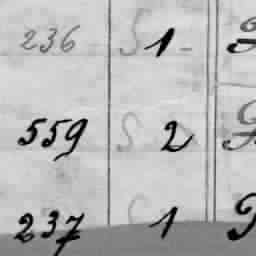 236 S 1 -
559 S 2
237 S 1